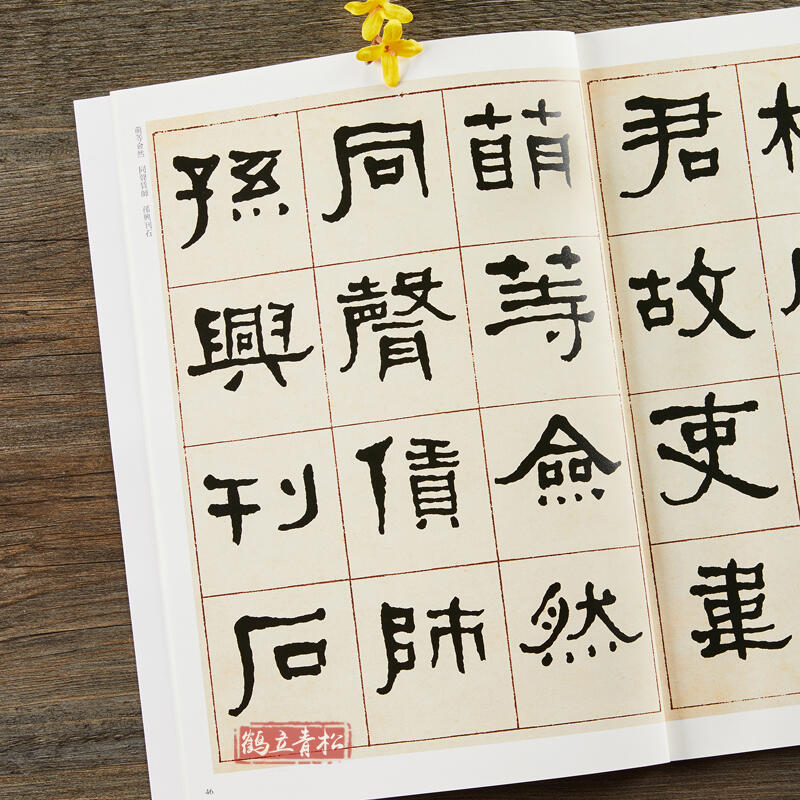 君故吏韋
萌等僉然
同聲賃師
孫興刊石
萌等僉然　同聲賃師　孫興刊石
46
鹤立青松